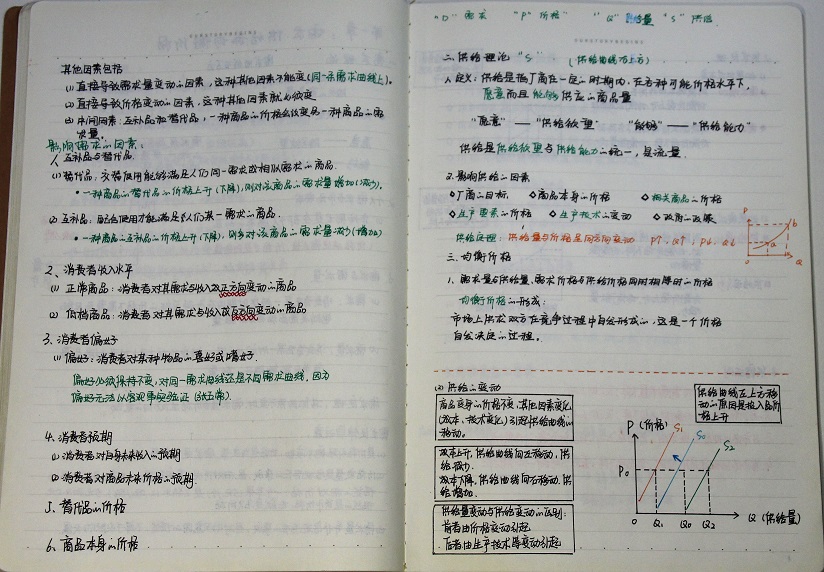 其他因素包括
(1) 直接导致需求量变动的因素，这种其他因素不能变(同一条需求曲线上)。
(2) 直接导致价格变动的因素，这种其他因素就必须变
(3) 中间因素：互补品和替代品，一种商品的价格会改变另一种商品的需
求量。
影响需求的因素：
1、互补品与替代品.
(1) 替代品：交替使用能够满足人们同一需求或相似需求的商品.
• 一种商品的替代品的价格上升(下降)，则对该商品的需求量增加(减少).
(2) 互补品：配合使用才能满足人们某一需求的商品.
• 一种商品的互补品的价格上升(下降)，则对该商品的需求量减少(增加)
2、消费者收入水平
(1) 正常商品：消费者对其需求与收入成正方向变动的商品
(2) 低档商品：消费者对其需求与收入成反方向变动的商品
3、消费者偏好
(1) 偏好：消费者对某种物品的喜好或嗜好.
偏好必须保持不变，对同一需求曲线还是不同需求曲线，因为
偏好无法以客观事实验证
4、消费者预期
(1) 消费者对自身未来收入的预期
(2) 消费者对商品未来价格的预期
5、替代品的价格
6、商品本身的价格
"D" 需求 "P" 价格 "Q" 供给量 "S" 供给
二、供给理论 "S" (供给曲线右上方)
1、定义：供给是指厂商在一定的时期内，在各种可能价格水平下，
愿意而且能够供应的商品量
"愿意"——"供给欲望" "能够"——"供给能力"
供给是供给欲望与供给能力的统一，是流量.
2、影响供给的因素
◇厂商的目标 ◇商品本身的价格 ◇相关商品的价格
◇生产要素的价格 ◇生产技术的变动 ◇政府的政策
供给定理：供给量与价格呈同方向变动 P↑ Q↑ P↓ Q↓
P
b
a
Q
三、均衡价格
1、需求量与供给量、需求价格与供给价格同时相等时的价格
均衡价格的形成：
市场上供求双方在竞争过程中自发形成的，这是一个价格
自发决定的过程。
(2) 供给的变动
商品本身的价格不变，其他因素变化
(成本、技术变化) 引起供给曲线的
移动。
成本上升，供给曲线向左移动，供
给减少.
成本下降，供给曲线向右移动，供
给增加.
供给量变动与供给变动的区别：
前者由价格变动引起
后者由生产技术等变动引起
供给曲线左上方移
动的原因是投入品价
格上升
P (价格)
S1
S0
S2
P0
0 Q1 Q0 Q2 Q (供给量)